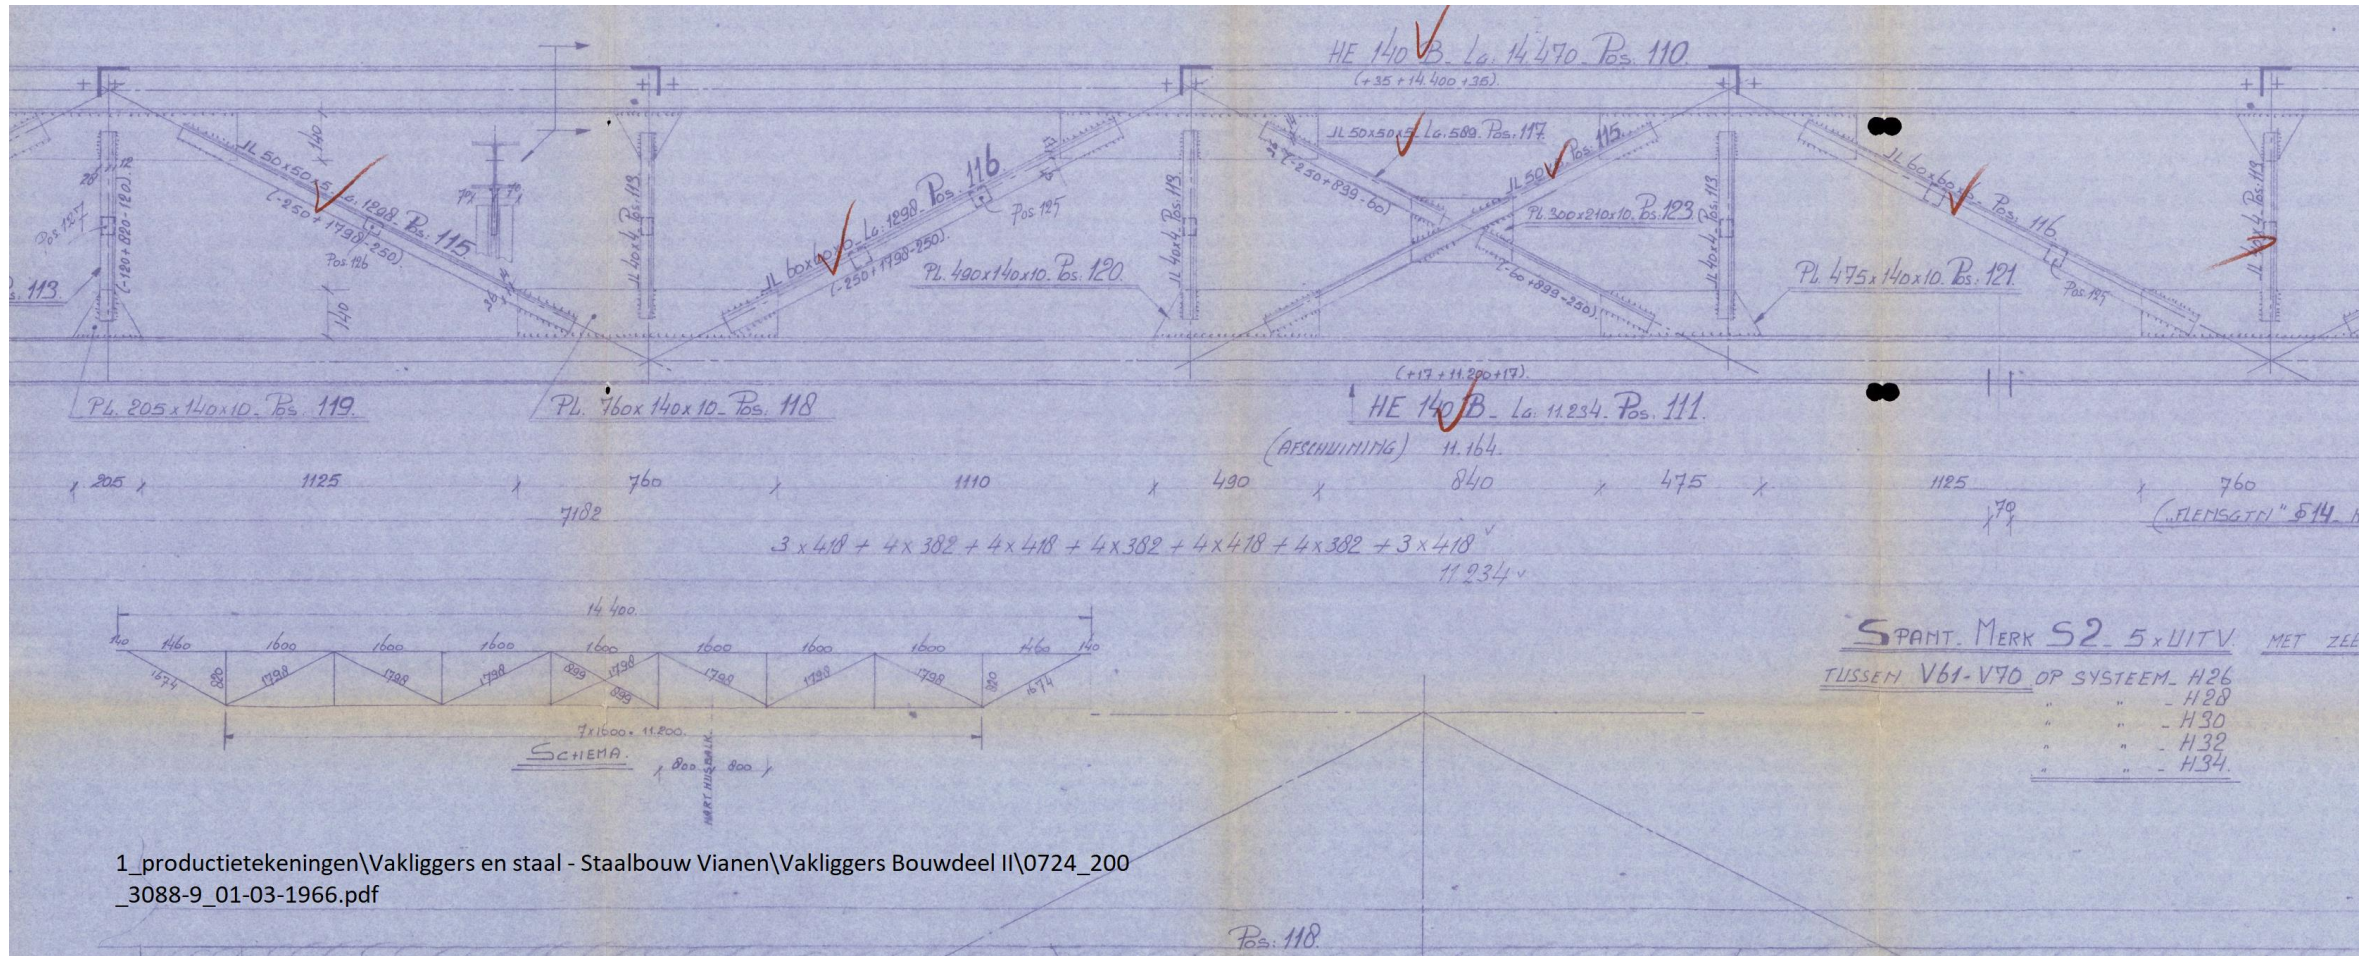 HE 140 B - Lg. 14.470 - Pos. 110.
(+35 + 14.400 +35)
JL 50x50x5 - Lg. 1298 - Pos. 115.
(-250 + 1798 - 250)
140
Pos. 126
Pos. 127
(-120+820-120)
113.
36
140
JL 40x4 - Pos. 113
JL 60x60x6 - Lg. 1298 - Pos. 116
(-250+1798-250).
Pos 125
PL. 490x140x10. Pos: 120.
JL 40x4 - Pos. 113
JL 50x50x5 - Lg. 589. Pos. 117.
(-250+899-60)
JL 50 Pos: 115
PL 300x210x10. Pos: 123
(-60 +899-250)
JL 40x4 - Pos. 113
JL 60x60x6 - Pos. 116.
Pos 125
PL 475x140x10. Pos: 121.
JL 40x4 Pos. 113
PL. 205x140x10 - Pos: 119.
PL. 760x140x10 - Pos: 118
(+17 +11.200+17).
HE 140 B - Lg. 11.234. Pos. 111.
(AFSCHUINING) 11.164.
205 1125 760 1110 490 840 475 1125 760
7182
70
("FLENSGTN" §14 -
3x418 + 4x382 + 4x418 + 4x382 + 4x418 + 4x382 + 3x418
11234
14 400.
140 1460 1600 1600 1600 1600 1600 1600 1600 1460 140
1674 820 1798 1798 1798 899 1798 899 1798 1798 1798 820 1674
7x1600 = 11.200.
SCHEMA.
800 800
HART HIJSBALK.
SPANT. MERK S2 - 5 x UITV. MET ZEE
TUSSEN V61-V70 OP SYSTEEM - H26
" " - H28
" " - H30
" " - H32
" " - H34.
1_productietekeningen\Vakliggers en staal - Staalbouw Vianen\Vakliggers Bouwdeel II\0724_200
_3088-9_01-03-1966.pdf
Pos: 118.